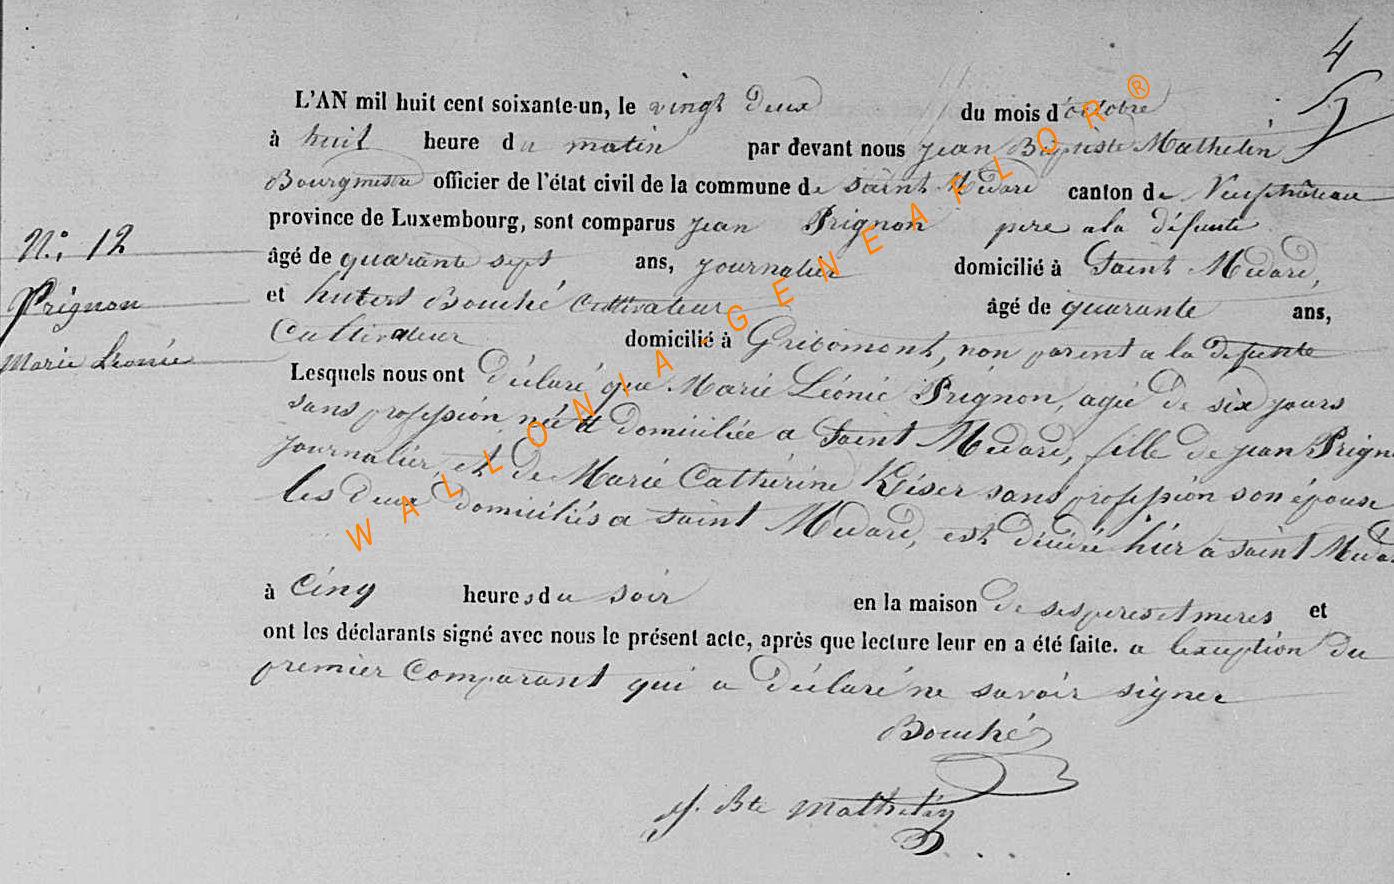 4
L'AN mil huit cent soixante-un, le vingt deux du mois d'octobre
à huit heure du matin par devant nous jean Baptiste Mathelin
Bourgmestre officier de l'état civil de la commune de Saint Médard canton de Neufchâteau
province de Luxembourg, sont comparus jean Prignon pere a la défunte
N.: 12
âgé de quarante sept ans, journalier domicilié à Saint Médard,
Prignon
et hubert Bouché Cultivateur âgé de quarante ans,
Marie Léonie
Cultivateur domicilié à Gribomont, non parent a la defunte
Lesquels nous ont déclaré que Marie Léonie Prignon, agée de six jours
sans profession, née et domiciliée a Saint Médard, fille de jean Prign
journalier, et de Marie Catherine Késer sans profession son épouse
les deux domiciliés a saint Médard, est décédée hier a saint Méda
à Cinq heures du soir en la maison de ses peres et meres et
ont les déclarants signé avec nous le présent acte, après que lecture leur en a été faite. a lexception du
premier Comparant qui a déclaré ne savoir signer
Bouché
J. Bte Mathelin
WALLONIA-GENEAFLOR®